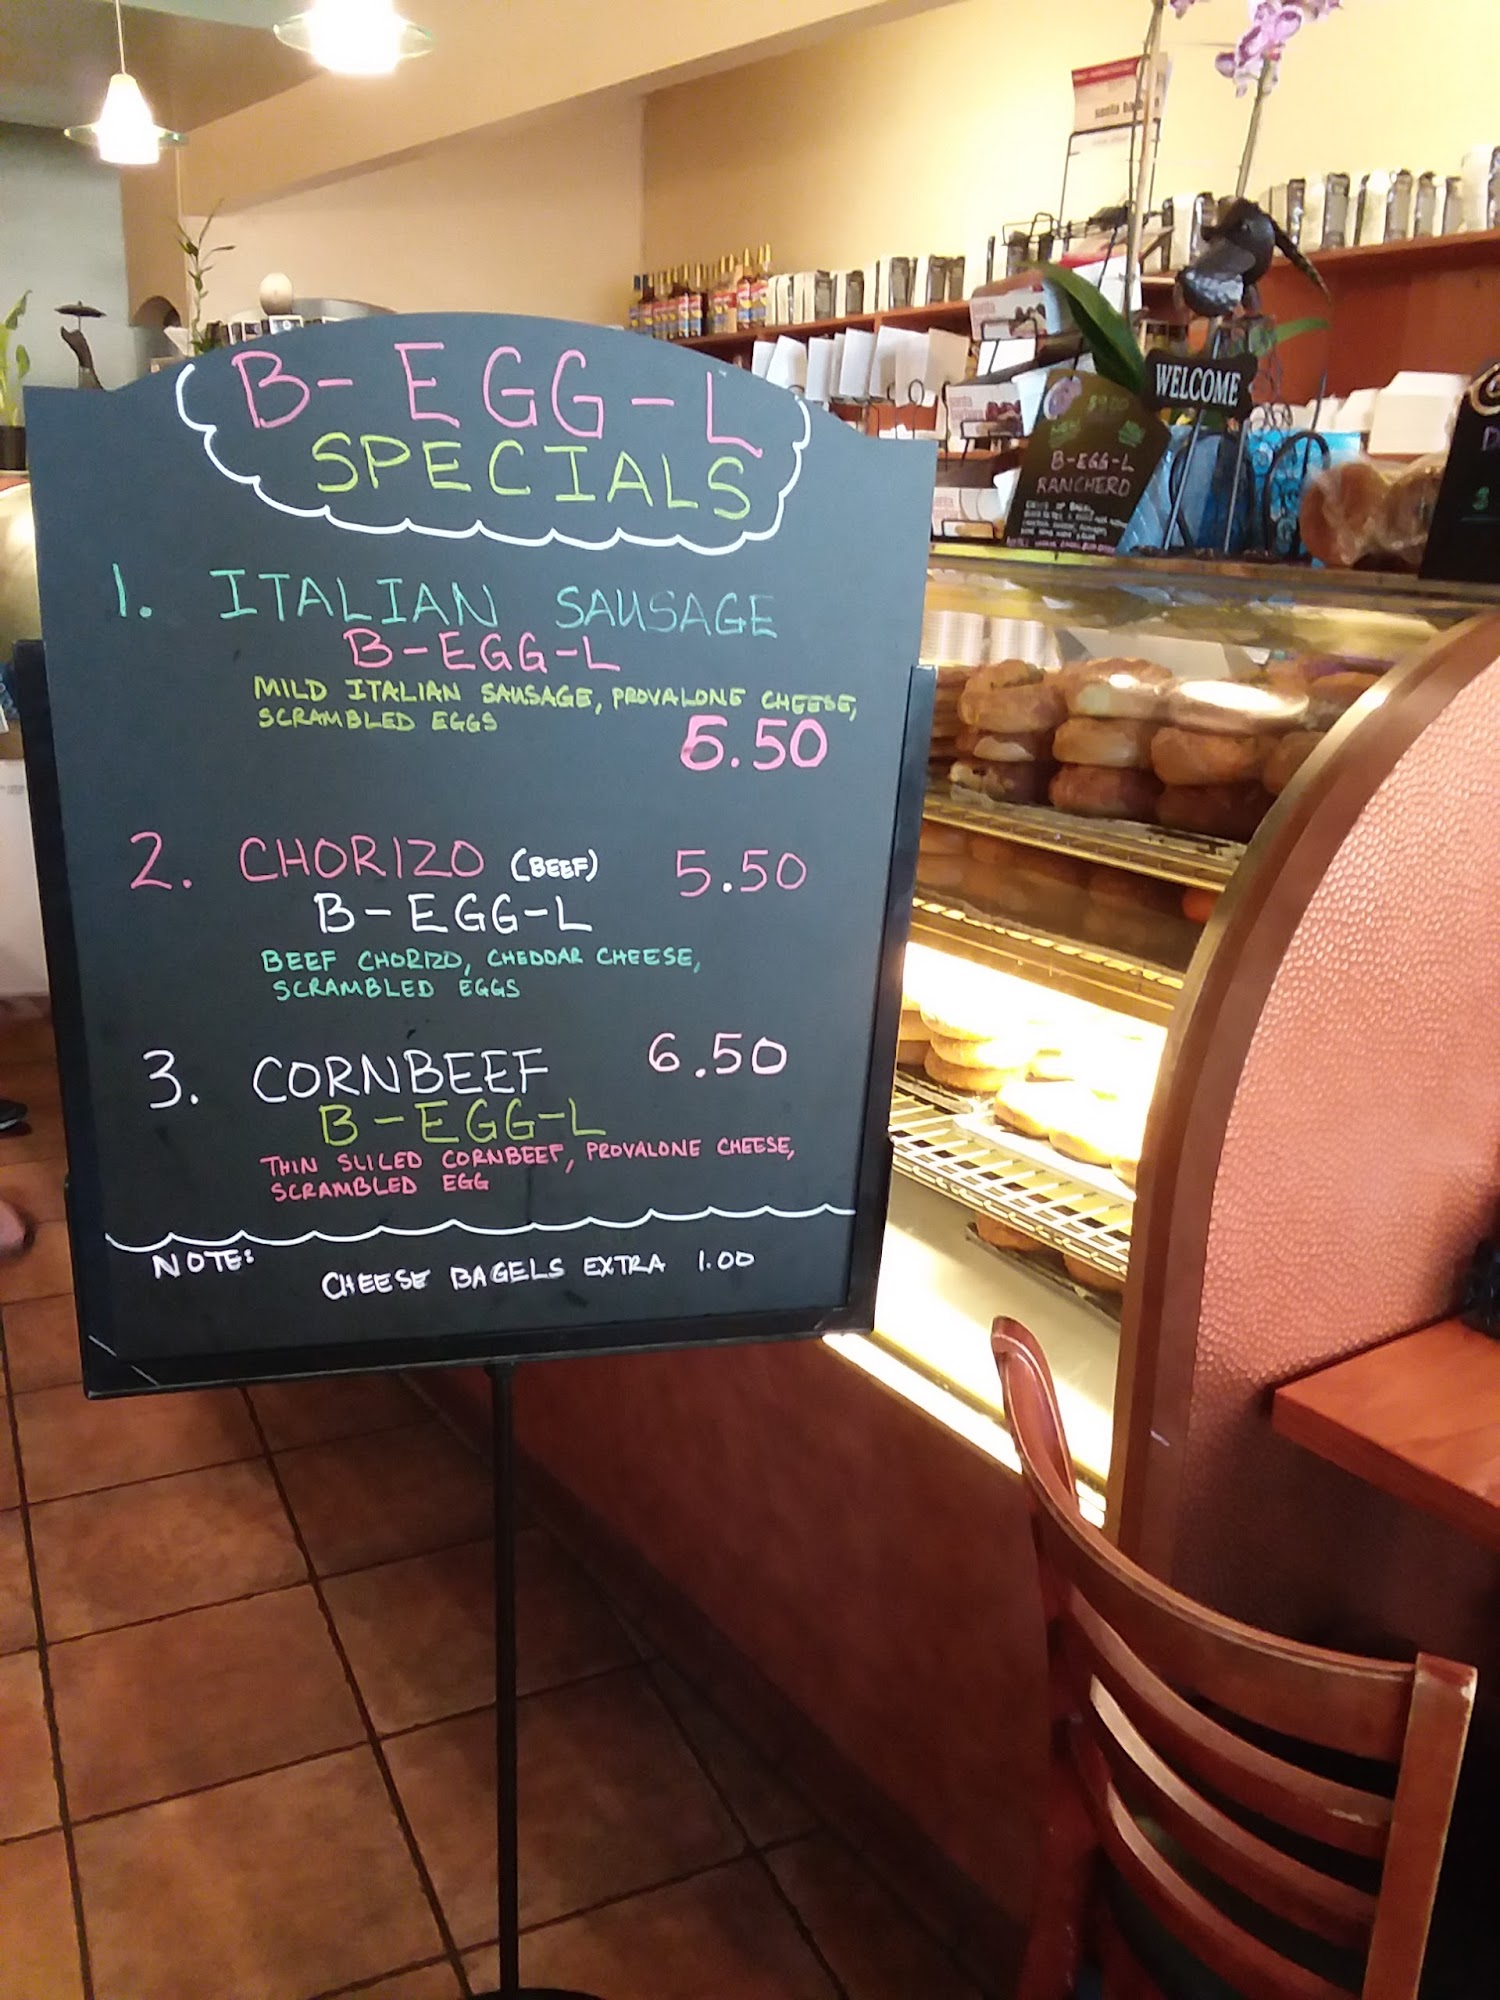 B-EGG-L
SPECIALS
1. ITALIAN SAUSAGE
B-EGG-L
MILD ITALIAN SAUSAGE, PROVALONE CHEESE,
SCRAMBLED EGGS
6.50
2. CHORIZO (BEEF) 5.50
B-EGG-L
BEEF CHORIZO, CHEDDAR CHEESE,
SCRAMBLED EGGS
3. CORNBEEF 6.50
B-EGG-L
THIN SLICED CORNBEEF, PROVALONE CHEESE,
SCRAMBLED EGG
NOTE:
CHEESE BAGELS EXTRA 1.00
WELCOME
B-EGG-L
RANCHERO